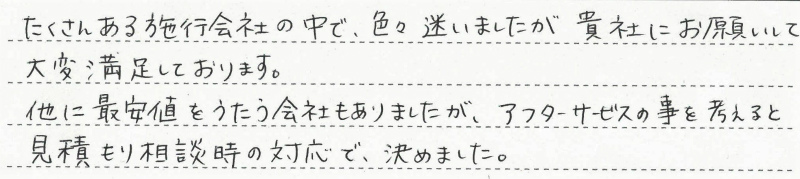 たくさんある施行会社の中で、色々迷いましたが貴社にお願いして
大変満足しております。
他に最安値をうたう会社もありましたが、アフターサービスの事を考えると
見積もり相談時の対応で、決めました。